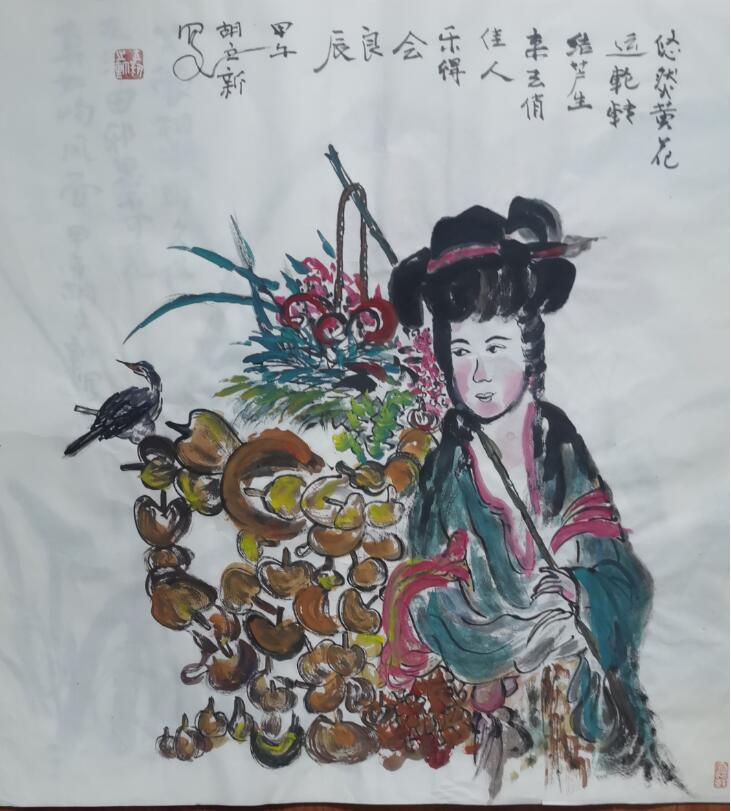 悠然黄花
运乾转
结芦生
来去俏
佳人
乐得
会
良
辰
甲午
胡立新
写